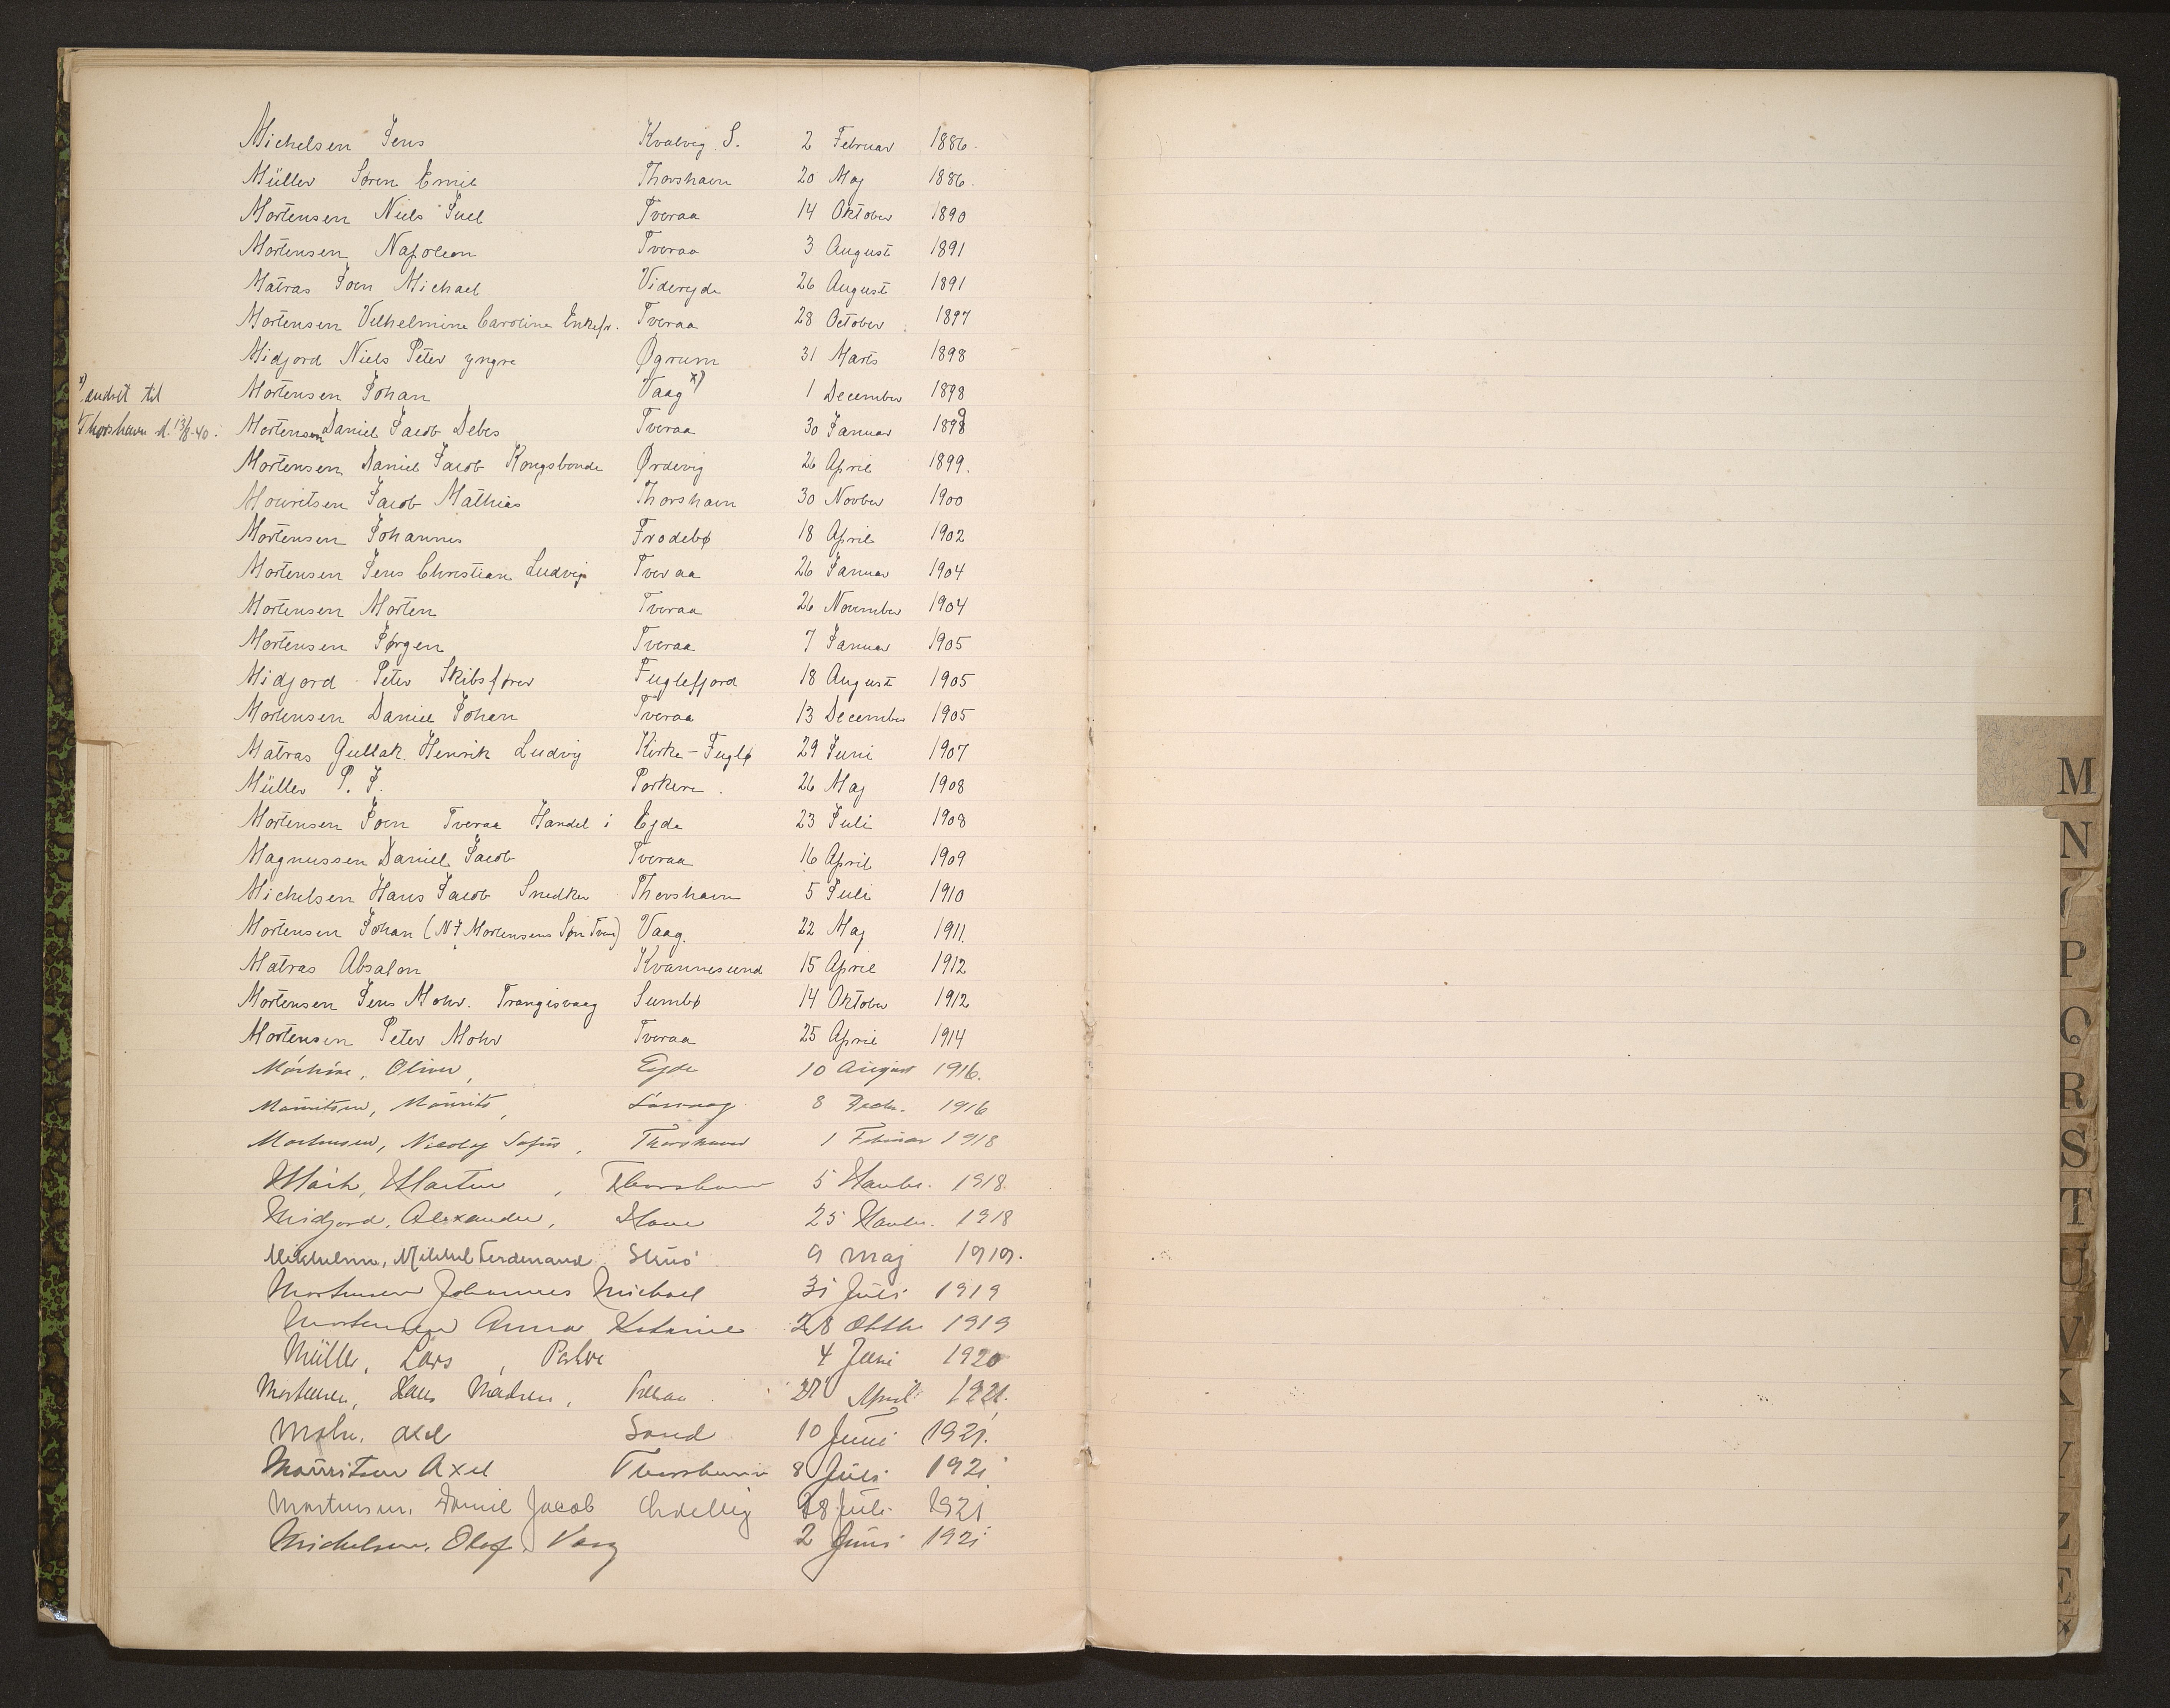 Michelsen Jens Kvalvig S. 2 Februar 1886.
Müller Søren Emil Thorshavn 20 Maj 1886.
Mortensen Niels Juel Tveraa 14 Oktober 1890
Mortensen Napoleon Tveraa 3 August 1891
Matras Joen Michael Viderejde 26 August 1891
Mortensen Vilhelmine Caroline Enkefr. Tveraa 28 October 1897
Midjord Niels Peter yngre Øgrum 31 Marts 1898
x) ændret til Mortensen Johan Vaag x) 1 December 1898
Thorshavn d. 13/8-40. Mortensen Daniel Jacob Debes Tveraa 30 Januar 1899
Mortensen Daniel Jacob Kongsbonde Ørdevig 26 April 1899.
Mouritsen Jacob Mathias Thorshavn 30 Novber 1900
Mortensen Johannes Frodebø 18 April 1902
Mortensen Jens Christian Ludvig Tveraa 26 Januar 1904
Mortensen Morten Tveraa 26 November 1904
Mortensen Jørgen Tveraa 7 Januar 1905
Midjord Peter Skibsfører Fuglefjord 18 August 1905
Mortensen Daniel Johan Tveraa 13 December 1905
Matras Gullak Henrik Ludvig Kirke-Fuglø 29 Juni 1907
Müller P. J. Porkere. 26 Maj 1908
Mortensen Joen Tveraa Handel i Ejde 23 Juli 1908
Magnussen Daniel Jacob Tveraa 16 April 1909
Michelsen Hans Jacob Snedker Thorshavn 5 Juli 1910
Mortensen Johan (N J Mortensens Søn Tver) Vaag. 22 Maj 1911.
Matras Absalon Kvannesund 15 April 1912
Mortensen Jens Mohr. Trangisvaag Sumbø 14 Oktober 1912
Mortensen Peter Mohr Tveraa 25 April 1914
Oliver, Ejde 10 August 1916.
Mouritsen, Mourits, 8 Decbr. 1916
Mortensen, Nicolaj Sofus, Thorshavn 1 Februar 1918
Morten, Thorshavn 5 1918.
Midjord, Alexander, 25 1918
Mikkelsen, Mikkel Ferdinand Skuø 9 maj 1919.
Mortensen Johannes Michael 31 Juli 1919
Mortensen Anna Katrine 28 Oktbr 1919
Müller, Lars, 4 Juni 1920
Mortensen, Hans Tveraa 27 April 1921.
Mohr, Axel Sand 10 Juni 1921.
Mouritsen Axel Thorshavn 8 Juli 1921
Mortensen, Daniel Jacob 28 Juli 1921
Michelsen, Olaf. Vaag 2 Juni 1921
M
N
P
Q
R
S
T
U
V
X
Y
Z
Æ